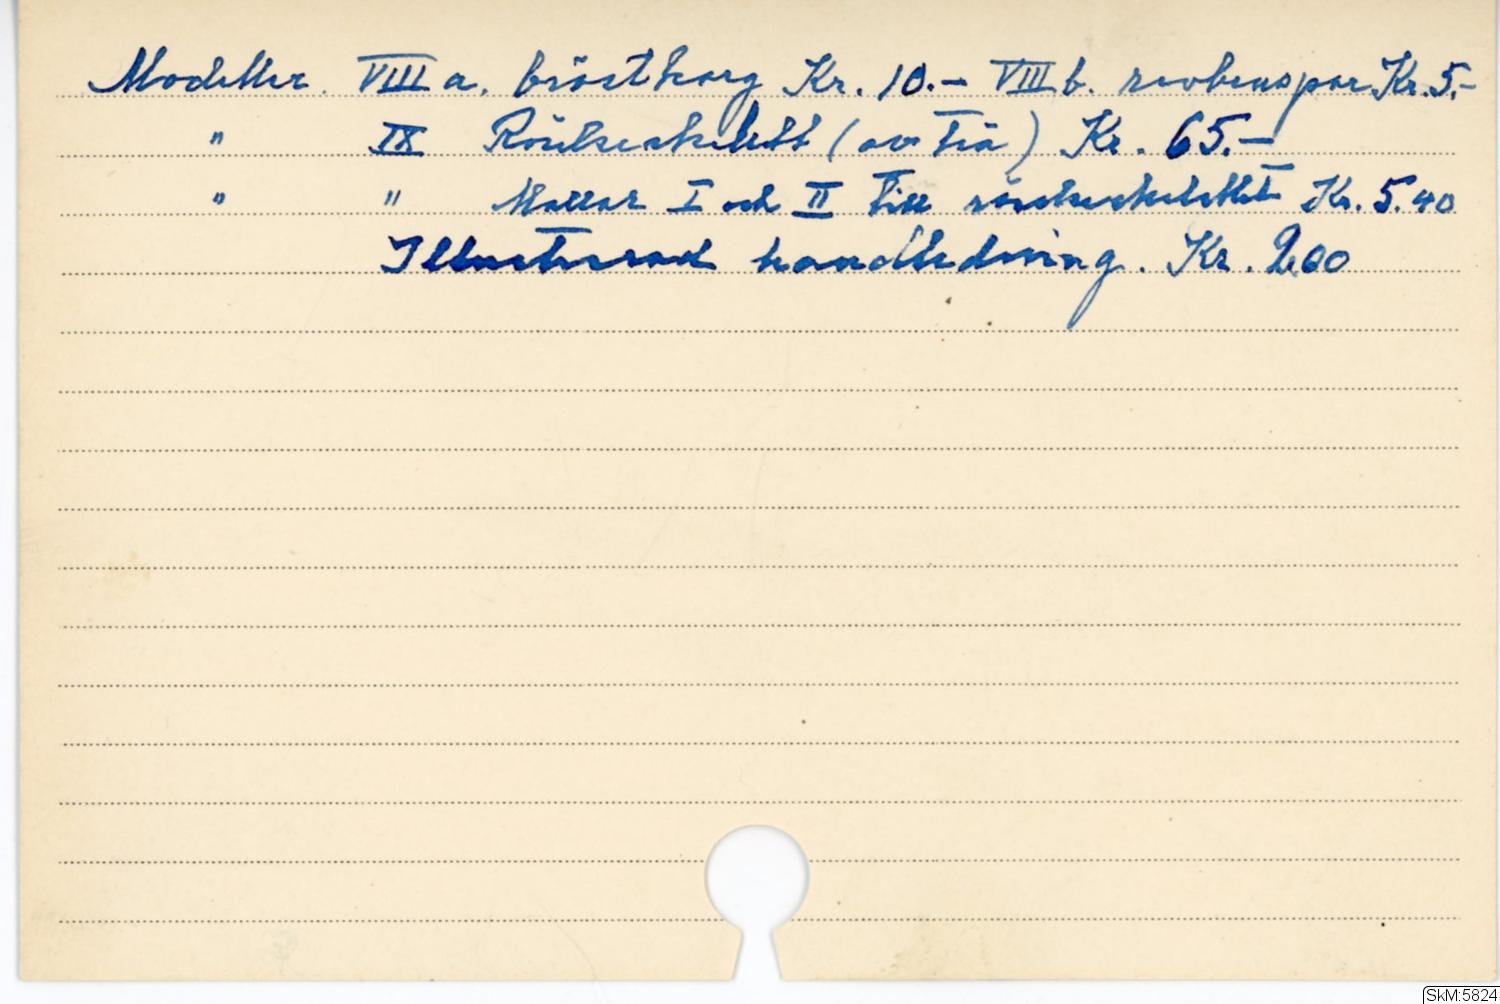 Modeller. VIII a. bröstkorg Kr. 10.- VIII b. revbenspar Kr. 5.-
" IX Rörelseskelett (av trä) Kr. 65.-
" " Mallar I och II till rörelseskelettet Kr. 5.40
Illustrerad handledning. Kr. 2.00
SkM:5824